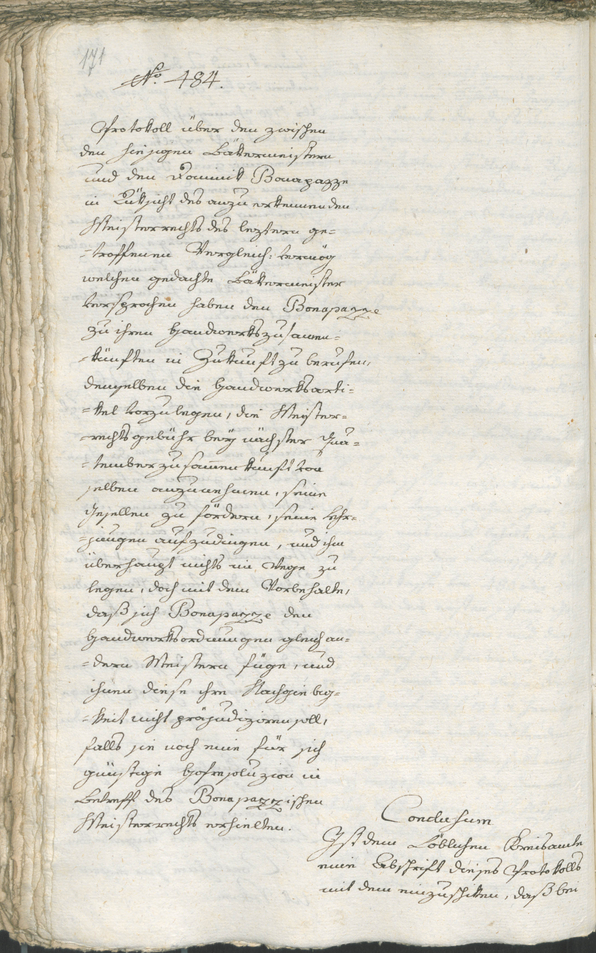 171
No. 484.
Protokoll über den zwischen
den hiesigen Bäkermeistern
und den Dominik Bonapazze
in Rüksicht des anzuerkennenden
Meisterrechts des leztern ge=
=troffenen Vergleich: vermög
welchen gedachte Bäkermeister
versprochen haben den Bonapazze
zu ihren Handwerkszusamen=
=künften in Zukunft zu berufen,
demselben die Handwerksarti=
=kel vorzulegen, die Meister=
=rechtsgebühr bey nächster Qua=
=temberzusamenkunft von
selben anzunehmen, seine
Gesellen zu fördern, seine Lehr=
=jungen aufzudingen, und ihm
überhaupt nichts im Wege zu
legen, doch mit dem Vorbehalte,
daß sich Bonapazze den
Handwerksordnungen gleich an=
=dern Meistern füge, und
ihnen diese ihre Nachgiebig=
=keit nicht präjudiziren soll,
falls sie noch eine für sich
günstige Hofresoluzion in
Betreff des Bonapazzischen
Meisterrechts erhielten.
Conclusum
Ist dem Löblichen Kreisamte
eine Abschrift dieses Protokolls
mit dem einzuschiken, daß bei